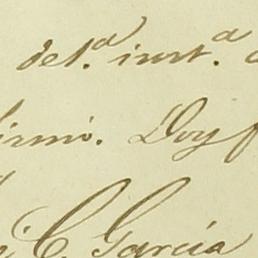 del.ª inst.ª
firmó. Doy f
C. García